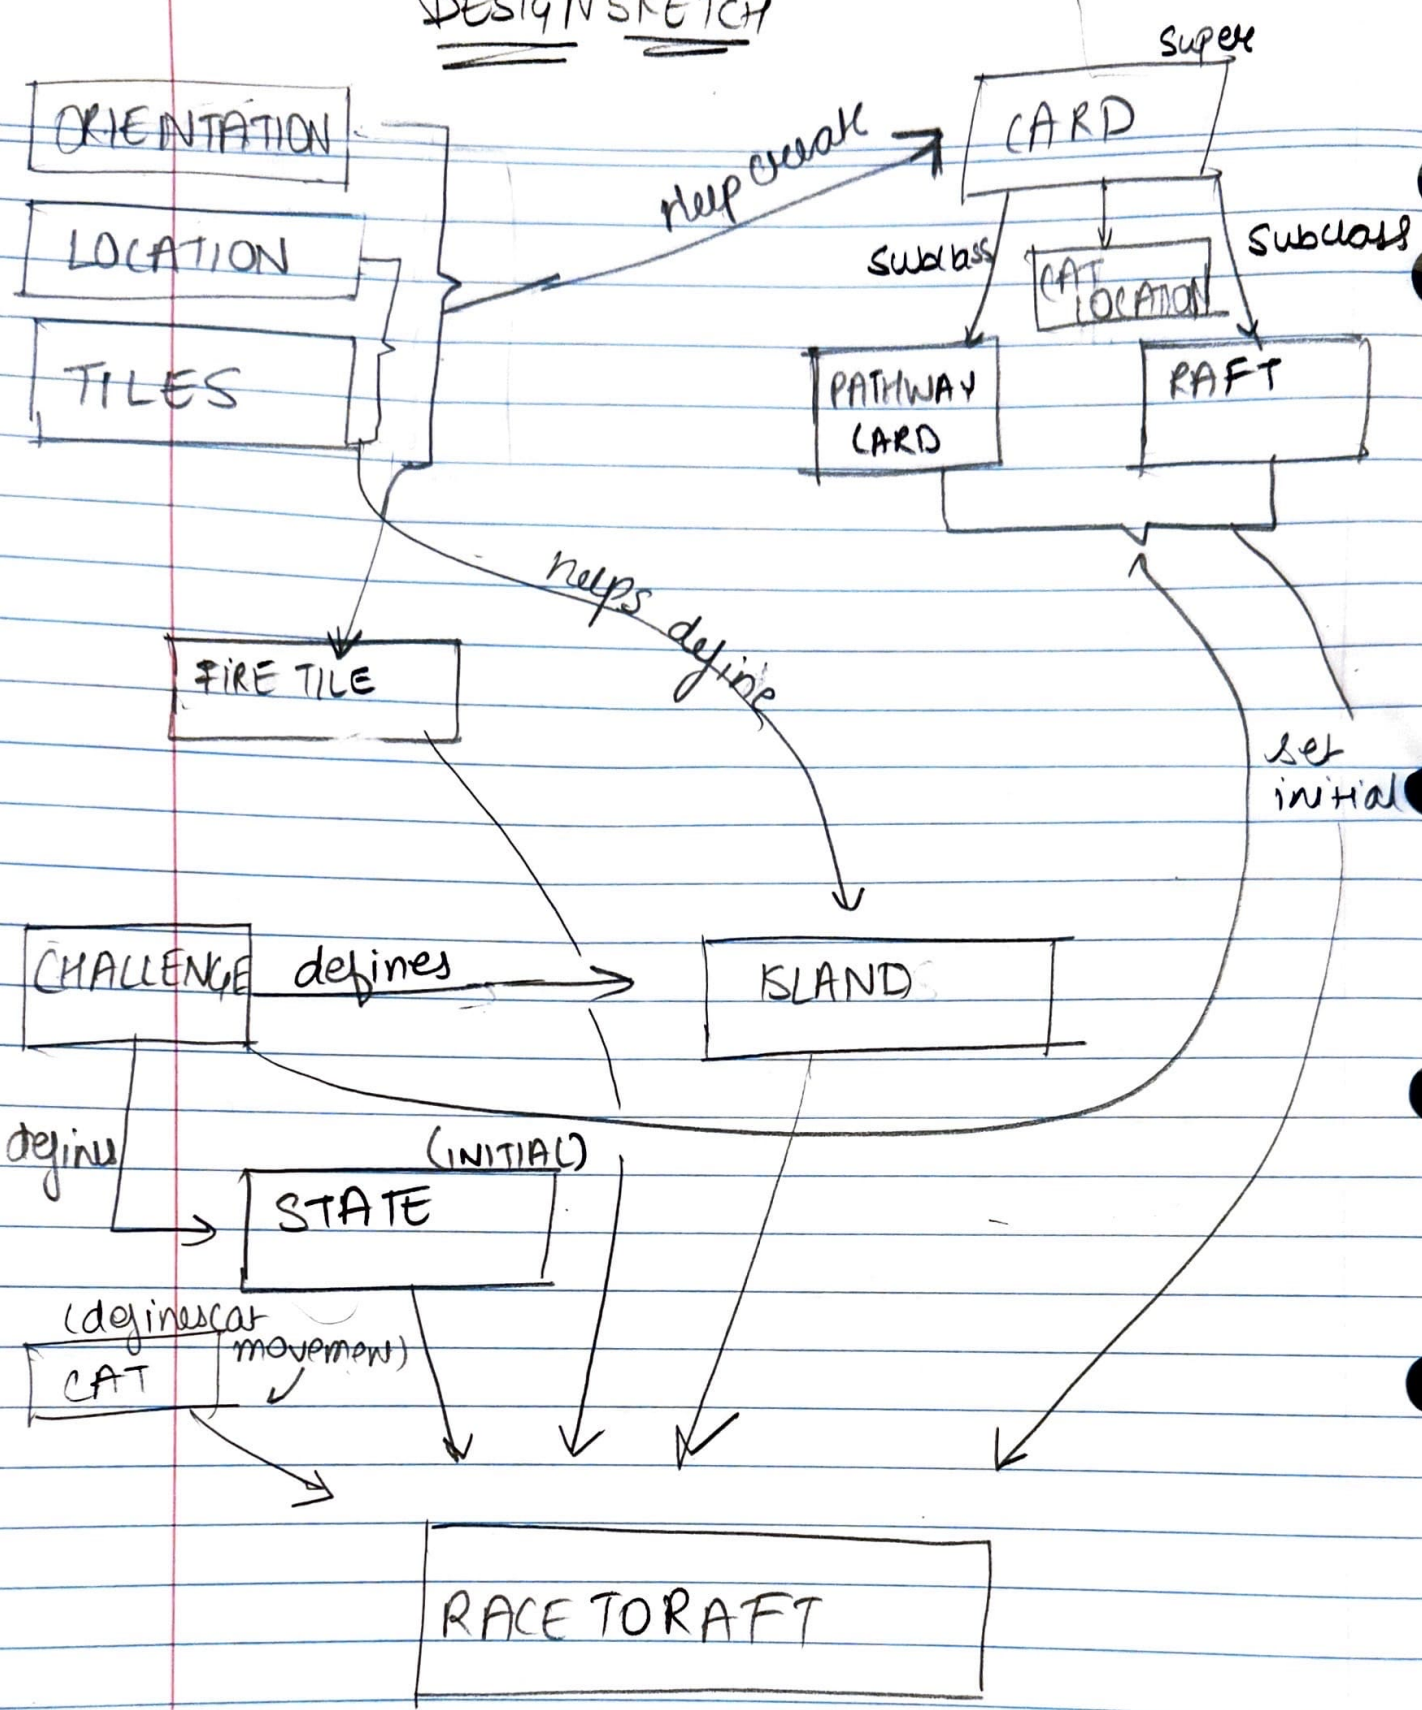 DESIGN SKETCH
super
ORIENTATION
CARD
Help create
LOCATION
subclass
CAT
LOCATION
subclass
TILES
PATHWAY
CARD
RAFT
helps define
FIRE TILE
set
initial
CHALLENGE
defines
ISLAND
defines
(INITIAL)
STATE
(defines cat
movement)
CAT
RACE TO RAFT